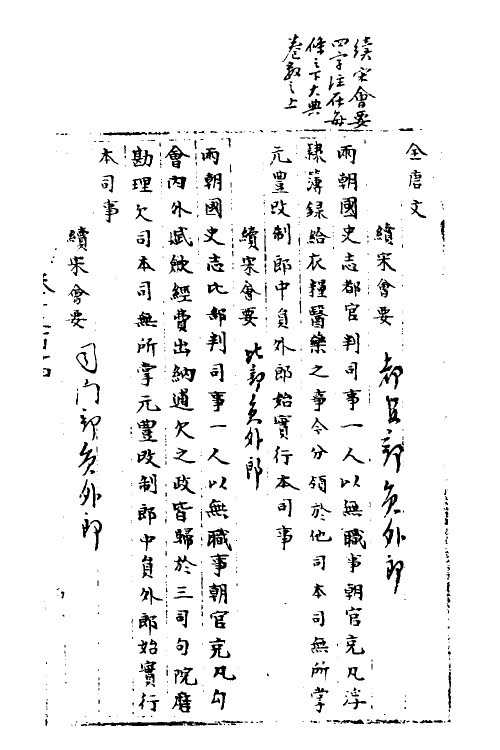 續宋會要
四字注在每
條之下大典
卷数之上
全唐文
續宋會要 都官部員外郎
兩朝國史志都官判司事一人以無職事朝官充凡浮
隸簿録給衣糧醫藥之事今分領於他司本司無所掌
元豐改制郎中員外郎始實行本司事
續宋會要 比部員外郎
兩朝國史志比部判司事一人以無職事朝官充凡勾
會内外賦歛經費出納逋欠之政皆歸於三司句院磨
勘理欠司本司無所掌元豐改制郎中員外郎始實行
本司事
續宋會要 司門部員外郎